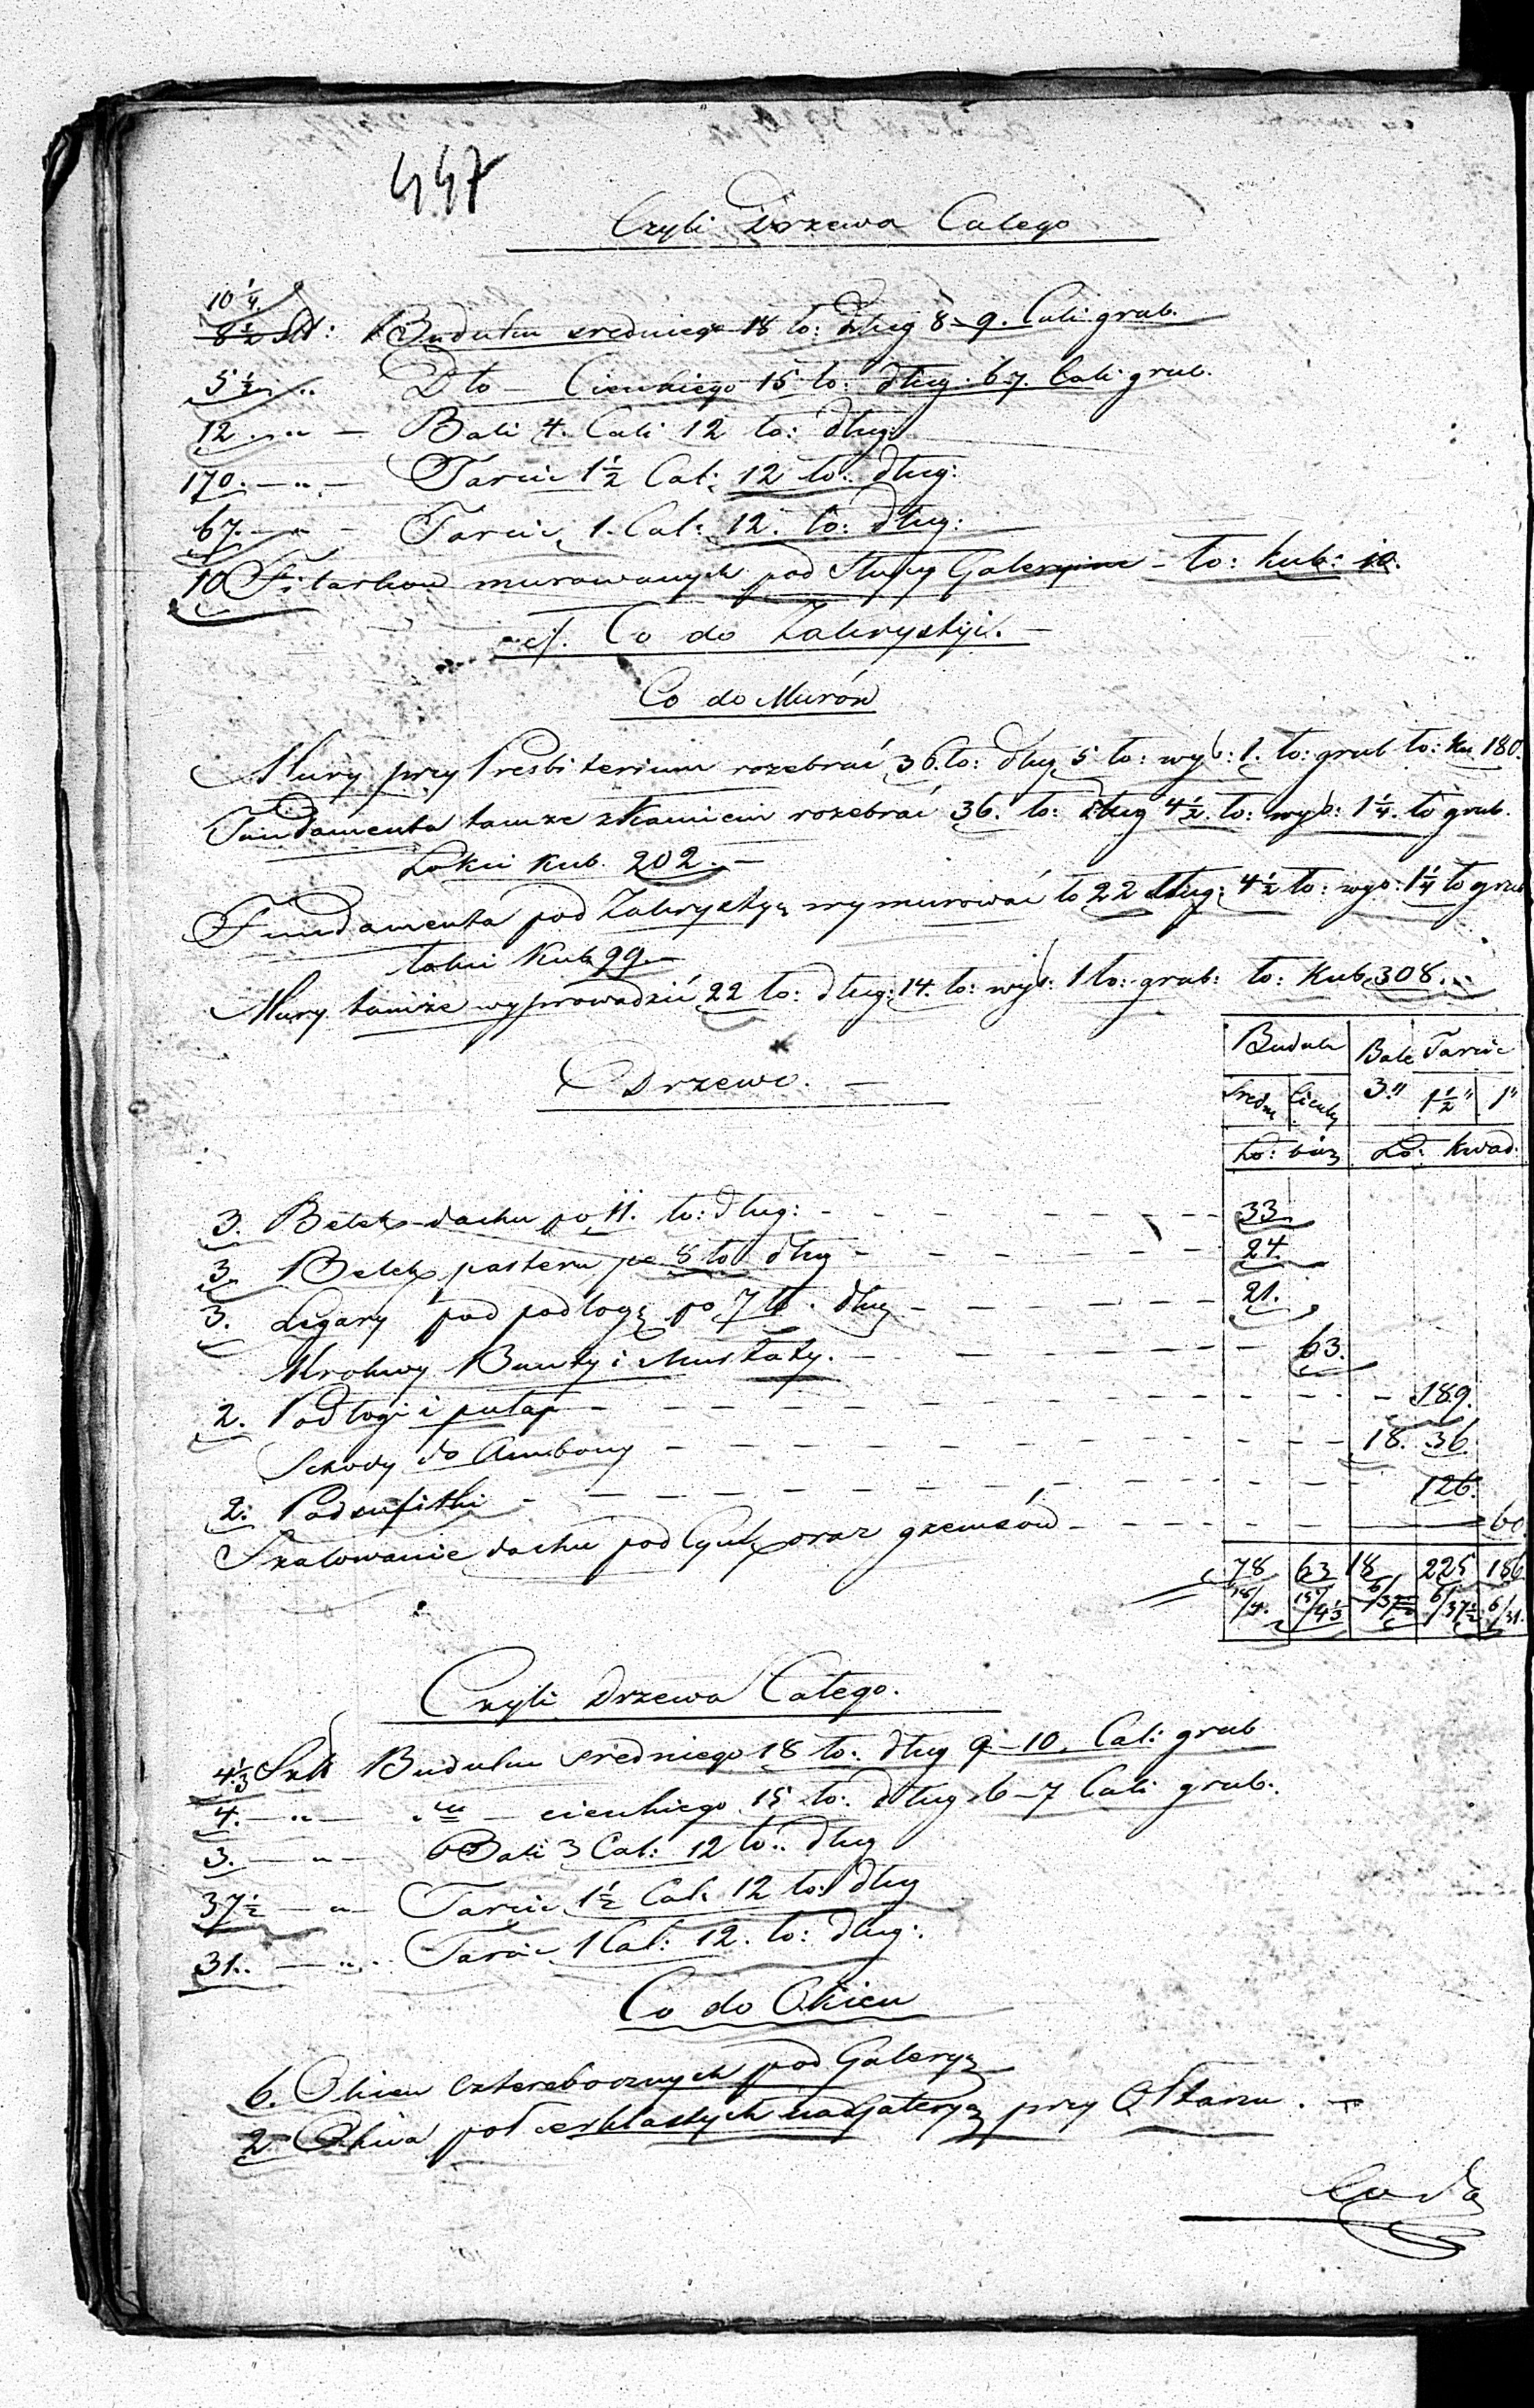 447
Czyli Drzewa Całego
10 1/4
8 1/2 Szt: Budulcu sredniego 18 ło: dług 8-9. Cali grub.
5 1/2 " Dto - Cienkiego 15 ło: dług. 6 7. Cali grub.
12 " - Bali 4. Cali 12 ło: dług:
170. - " - Tarcic 1 1/2 Cal: 12 ło: dług:
67. - " - Tarcic 1. Cal: 12. ło: dług:
10 Filarkow murowanych pod Słupy Galeryine - ło: kub: 10.
Co do Zakrystyi. -
Co do Murów
Mury przy Presbiterium rozebrać 36. ło: dług 5 ło: wys: 1. ło: grub ło: Ku. 180.
Fundamenta tamze z kamieni rozebrać 36. ło: dług 4 1/2. ło: wys: 1 1/4. ło grub.
Łokci Kub. 202. -
Fundamenta pod Zakrystyą wymurować ło 22 dług: 4 1/2 ło: wys: 1 1/4 ło grub
łokci Kub 99. -
Mury tamże wyprowadzić 22 ło: dług: 14. ło: wys: 1 ło: grub: ło: Kub 308. -
Budulc Bale Tarcic
Drzewo. -
Sredn Cienky 3" 1 1/2" 1"
Ło: bież Ło: Kwad.
3. Belek dachu po 11. ło: dług: - 33
3 Belek pasteru po 8 ło dług - 24.
3. Legary pod podłogę po 7 ło. dług - 21.
Krokwy Banty i Murłaty. - 63.
2. Podłogi i pułap - 189.
Schody do Ambony - 18. 36
2. Podsufitki - 126.
Szalowanie dachu pod Cynk oraz gzemsów - 60
78 63 18 225 186
18/4 1/3 15/4 6/3 6/37 1/2 6/31.
Czyli Drzewa Całego.
4 1/3 Sztk Budulcu sredniego 18 ło: dług 9-10. Cal: grub
4. - " - " - cienkiego 15 ło: dług 6-7 Cali grub.
3. - " - Bali 3 Cal: 12 ło: dług
37 1/2 - " - Tarcic 1 1/2 Cal: 12 ło: dług
31. - " - Tarcic 1 Cal: 12. ło: dług:
Co do Okien
6. Okien czterebocznych pod Galeryą
2 Okna pół cerklastych nad Galeryą przy Ołtarzu. -
Co do